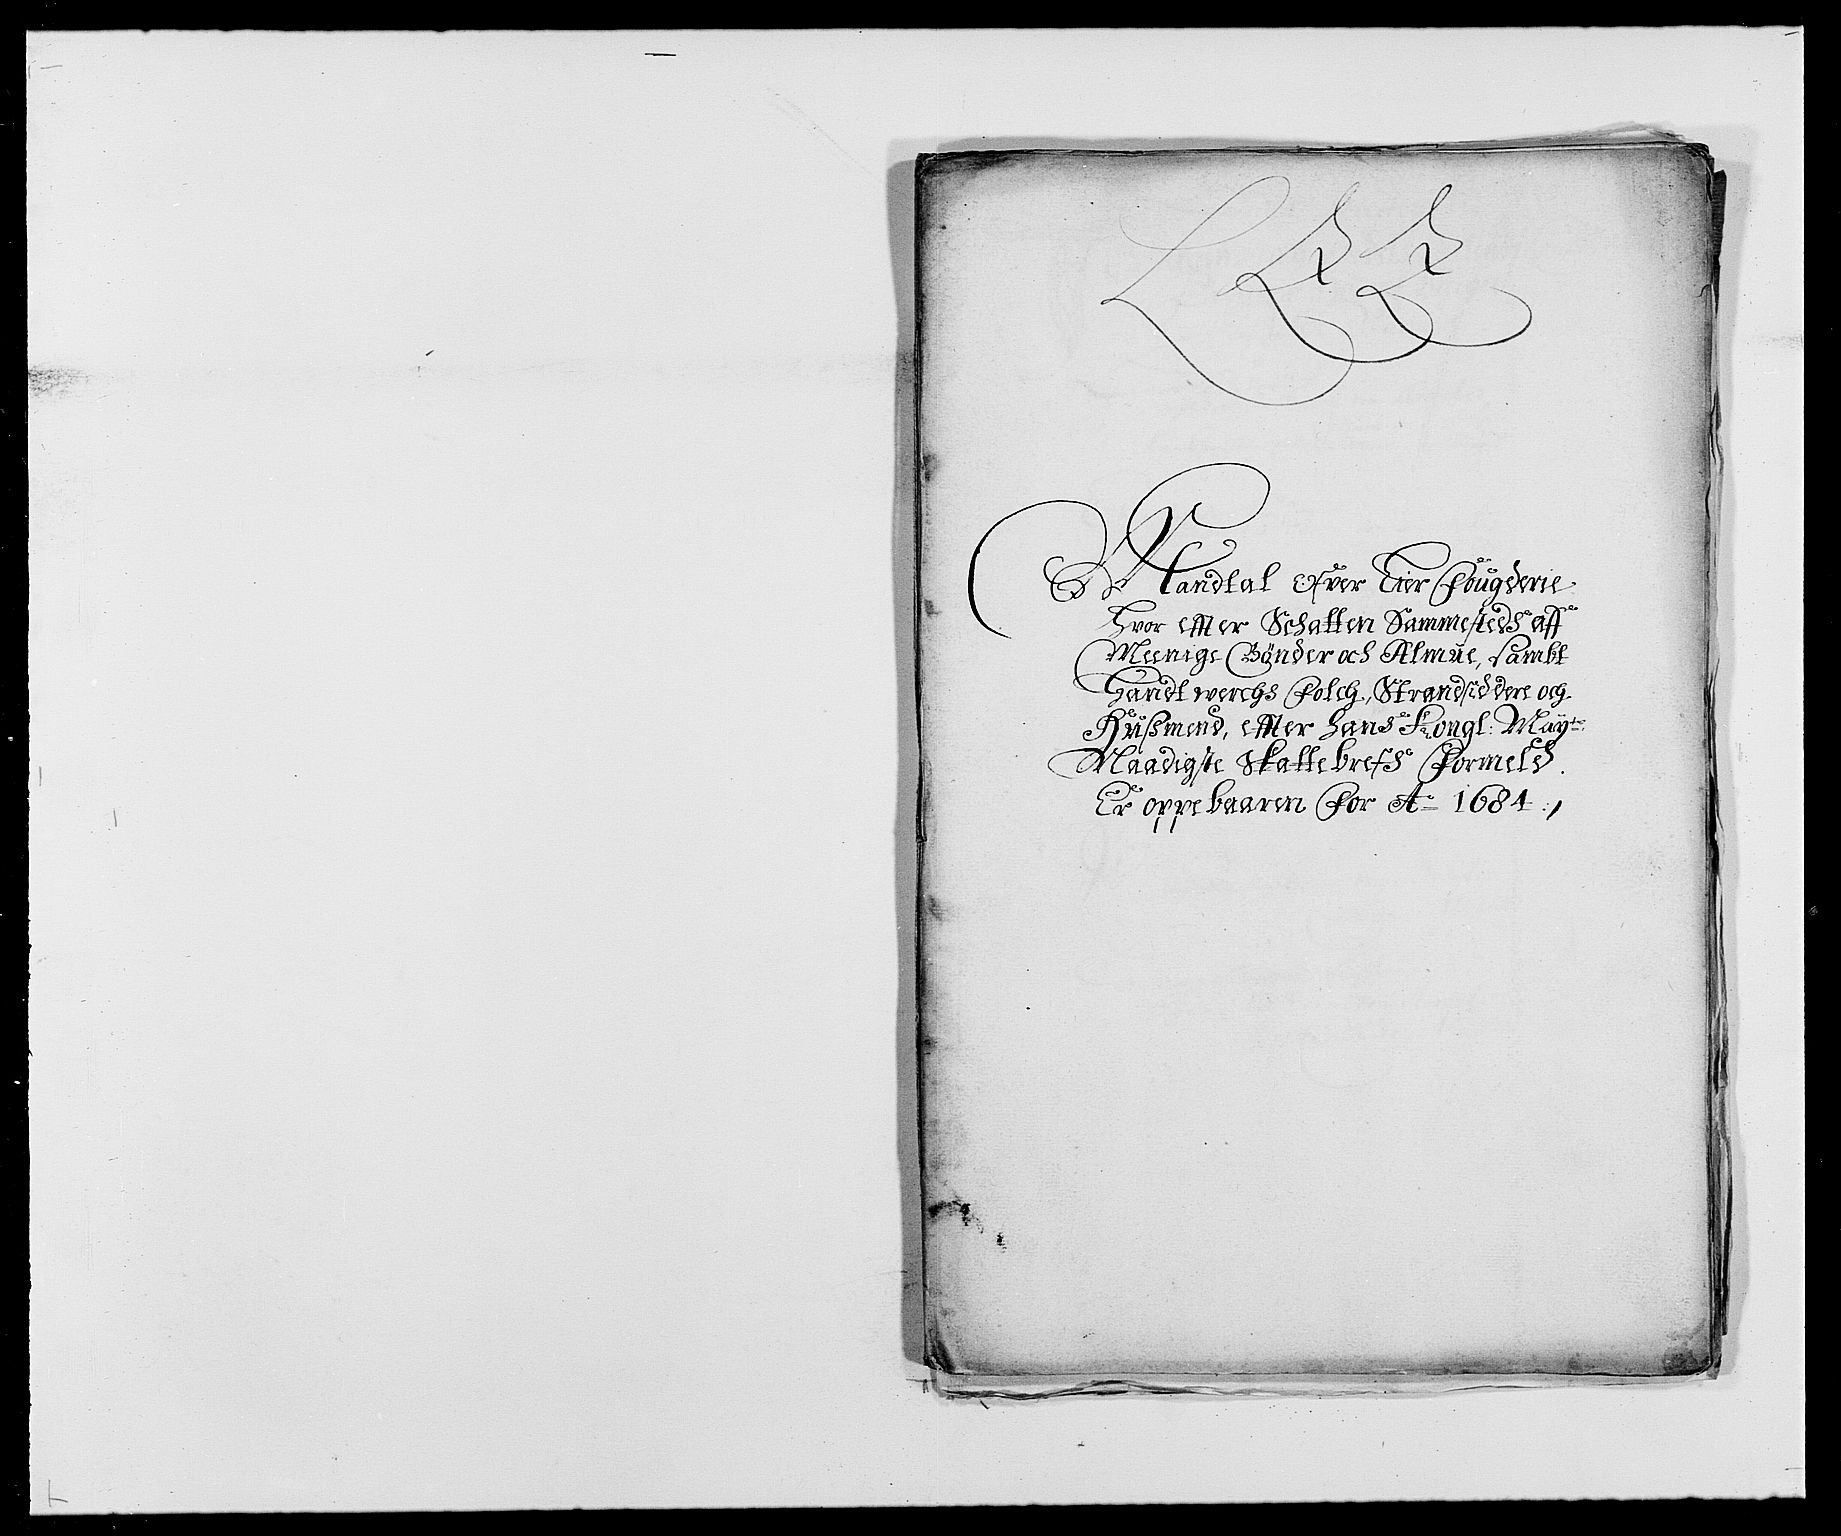 Mandtal ofver Lier Fougderie
Hvor effter Schatten Sammesteds aff
Meenige Bønder och Almue, sambt
Handtwerchs Folch, Strandsiddere och
Hußmend, effter Hans Kongl: Mayts:
Naadigste Skattebrefs Formeld.
Er oppebaaren For Ao 1684